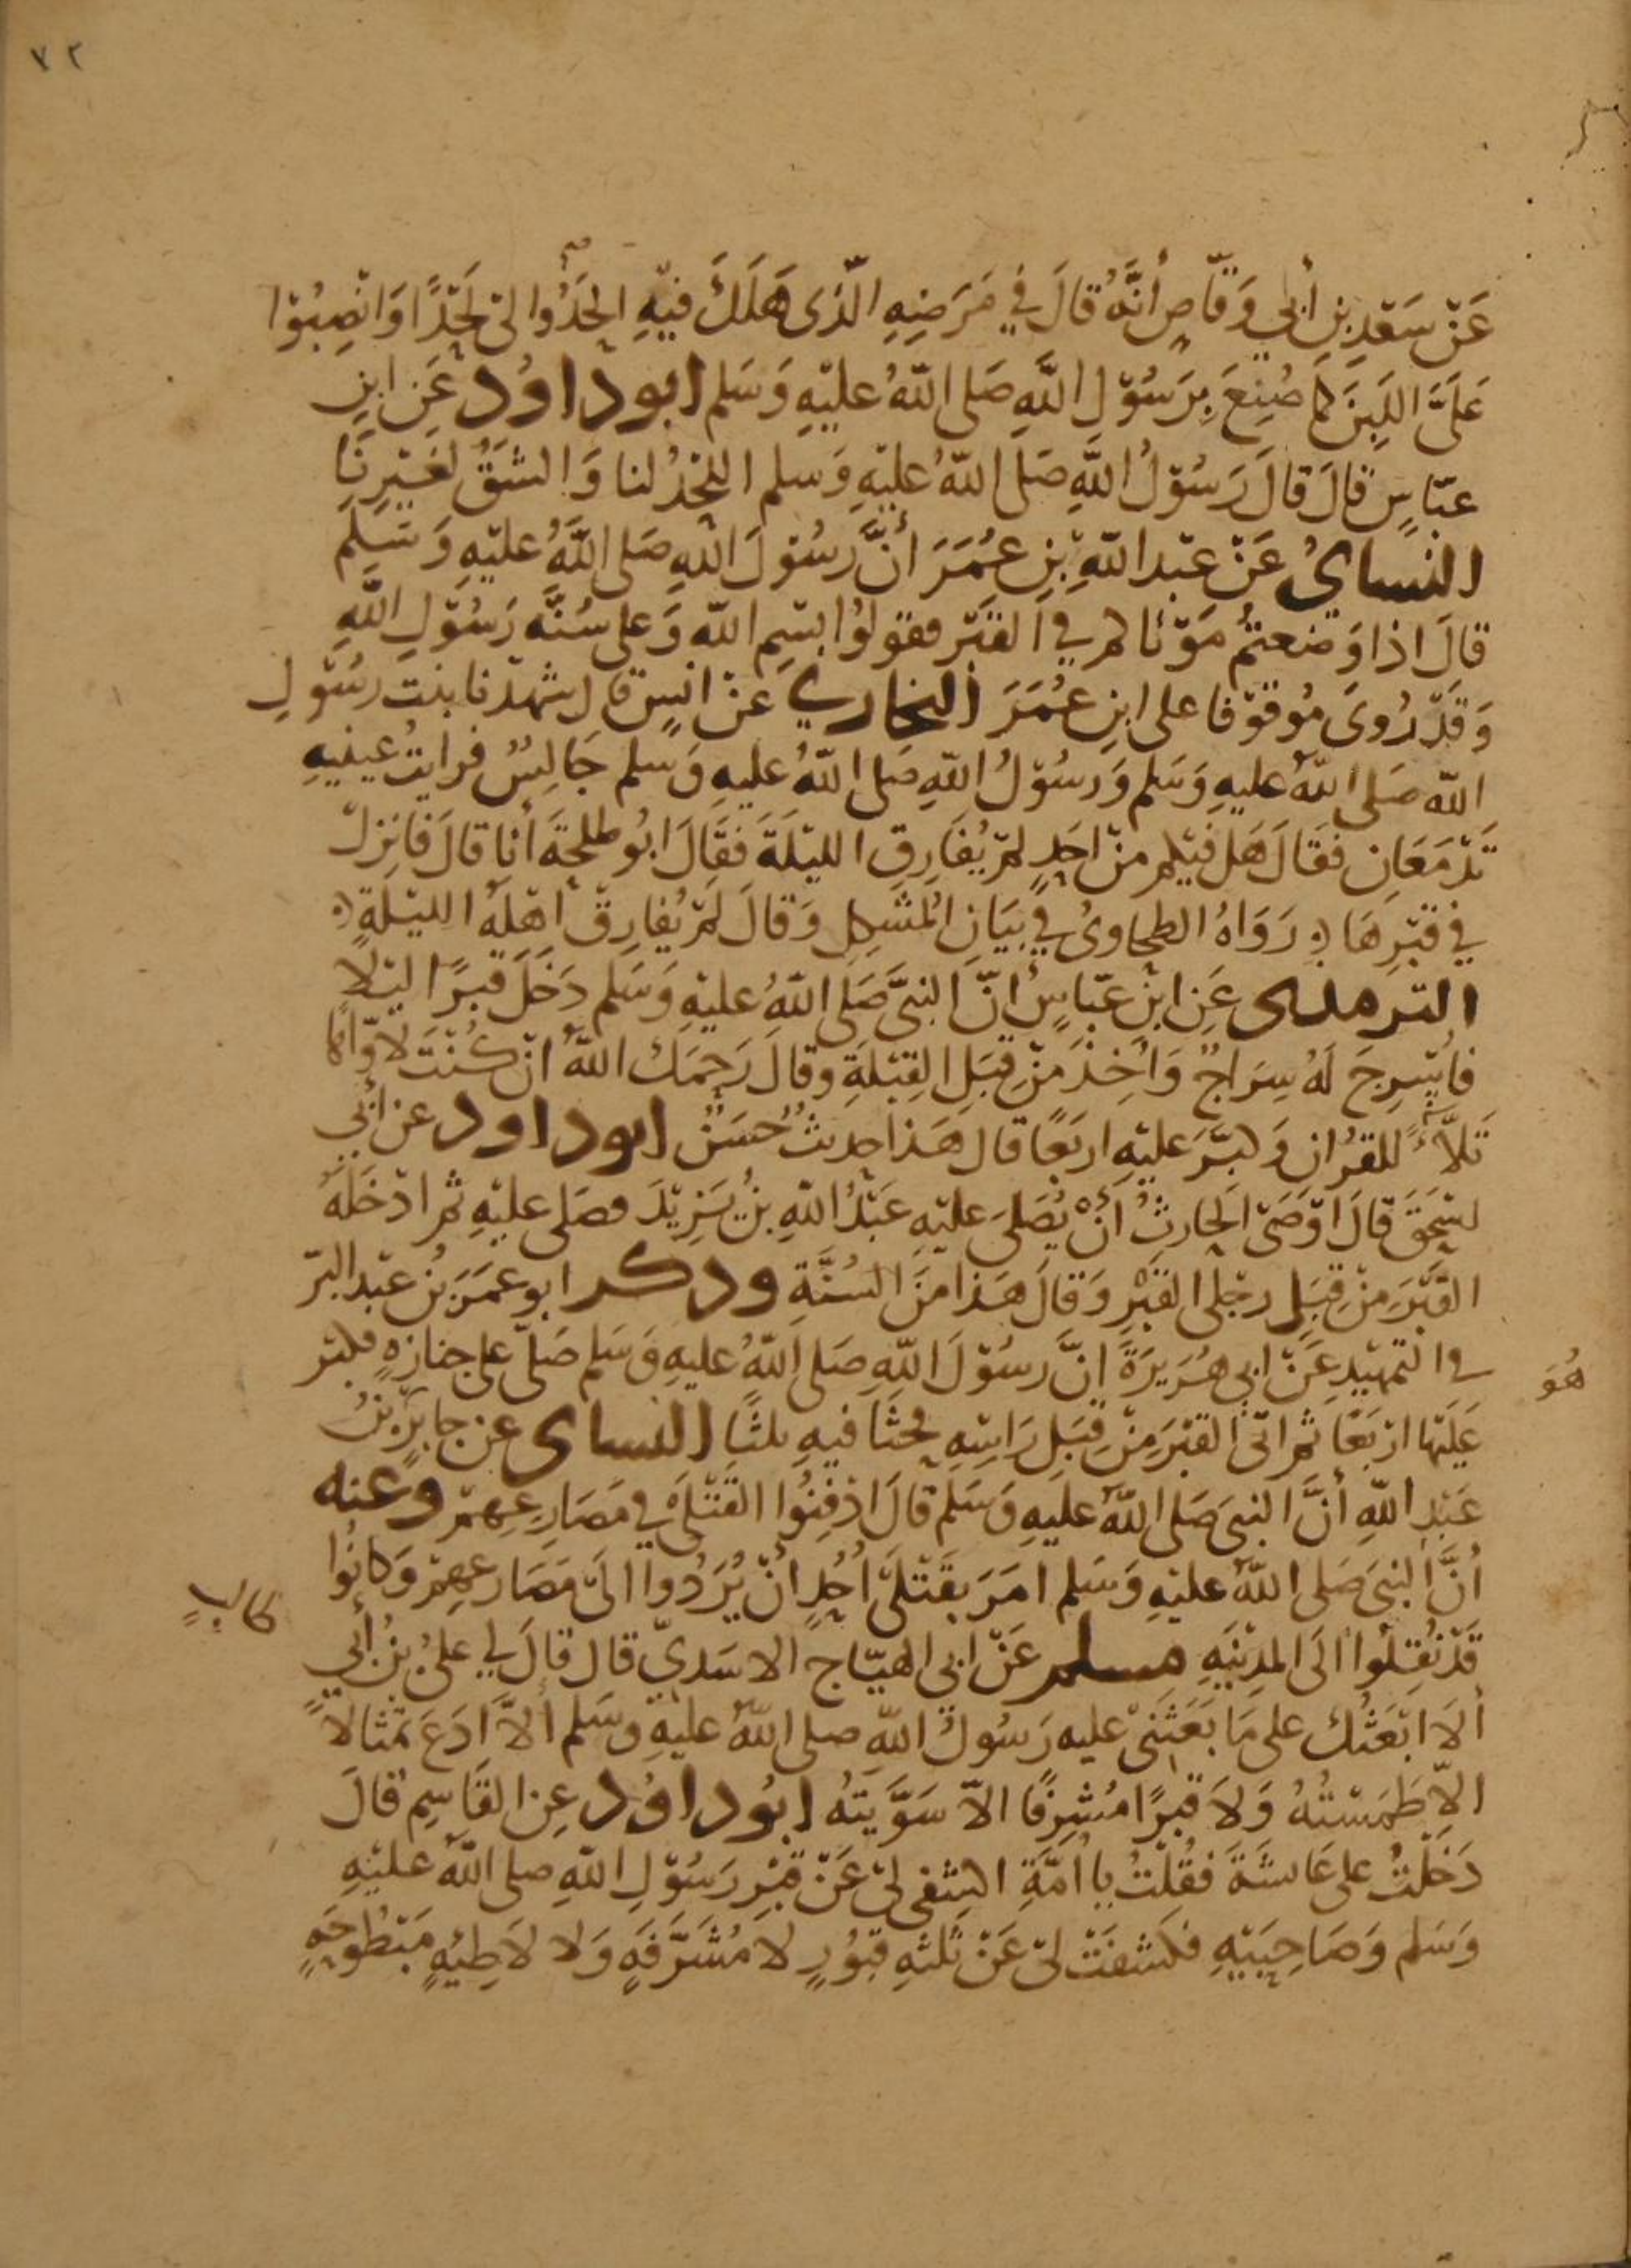 ٧٢
عَنْ سَعْدِ بنِ أبي وَقّاصٍ أنَّهُ قالَ في مَرَضِهِ الّذي هَلَكَ فيْهِ الحَدُوا لي لَحْدًا وَانْصِبُوْا
عَلَيَّ اللَّبِنَ كما صُنِعَ بِرَسُوْلِ اللَّهِ صَلى اللّهُ عليْهِ وَسَلم ابوداوُد عَنِ ابنِ
عبّاسٍ قالَ قالَ رَسُوْلُ اللَّهِ صَلى اللّهُ عليْهِ وَسلم اللحْدُ لنا وَالشقُّ لغَيْرِنَا
النسائ عَنْ عبْدِ اللّهِ بْنِ عُمَرَ أنَّ رسُوْلَ اللّهِ صَلى اللَّهُ عليْهِ وَسَلم
قالَ اذا وَضعتمُ مَوْتاكم في القبْرِ فقولوُا بسْمِ اللّه وَعلى سُنّة رَسُوْلِ اللّهِ
وَقدْ رُوىَ مُوقوْفا على ابنِ عُمَرَ البخاري عنْ انسٍ قال شهدْنا بنت رسُوْلِ
اللّه صَلى اللّهُ عليهِ وَسَلم وَرسُوْلُ اللّهِ صَلى اللّهُ عليهِ وَسَلم جَالِسٌ فرايتُ عينيهِ
تَدْمَعَانِ فقَالَ هَل فيْكم منْ احَدٍ لمْ يُقَارِفِ الليْلَةَ فقَالَ ابُو طلحَةَ أنا قالَ فانزلْ
في قبْرِهَا رَوَاهُ الطحاوىُ في بيَانِ المُشكِلِ وَقالَ لمْ يُقارِفْ اهْلَهُ الليْلةَ
الترمذي عَنِ ابنِ عبّاسٍ أنّ النبيَّ صَلى اللّهُ عليْهِ وَسَلم دَخَلَ قبرًا ليْلًا
فاُسْرِجَ لَهُ سِرَاجٌ وَاُخِذَ مَنْ قِبَلِ القِبْلَةِ وقالَ رَحِمَكَ اللّهُ انْ كُنْتَ لأوّاهًا
تَلاَّءً للقرْان وَكبَّرَ عليْهِ اربَعًا قال هَذا حديثٌ حُسَنٌ ابوداود عن أبي
اسْحَقَ قالَ اوْصَى الحَارِثُ أنْ يُصَلى عليْهِ عَبْدُ اللّهِ بنُ يَزِيْدَ فصَلى عليْهِ ثم ادْخَلَهُ
القبْرَ مِنْ قِبَلِ رجْلي القبْرِ وَقالَ هَذا مَنَ السُنَّةِ وذكر ابو عمَرَ بْنُ عبْدِ البرّ
في التمْهيْدِ عَنْ ابي هُرَيرَةَ انَّ رسُوْلَ اللّهِ صَلى اللّهُ عليهِ وَسَلم صَلّى على جنازهٍ فكبر
هُوَ
عَلَيْها ارْبَعًا ثم اتَى القبْرَ مِنْ قِبَلِ رَاسِهِ فحَثَا فيهِ ثلثًا النسائ عن جابرِ بْنِ
عَبْدِ اللّهِ أنَّ النبي صَلى اللّهُ عليهِ وَسَلم قالَ ادْفِنُوا القَتْلَى في مَصَارِعِهمْ وعنه
أنَّ النبيَ صَلى اللّهُ عليْهِ وَسَلم امَرَ بقَتْلَى اُحُدٍ انْ يُرَدُوا الىَ مَصَارِعِهمْ وَكانُوا
قَدْ نُقِلُوا الَى المدِيْنَهِ مسلم عَنْ ابي الهيّاج الاسَديّ قال قالَ لي عليُ بنُ أبي
طالبٍ
ألاَ ابَعَثُك على مَا بَعَثنىْ عليه رَسُولُ اللّهِ صلى اللّهُ عليْهِ وسَلم ألاَّ ادَعَ تمثالاً
الاّ طَمَسْتُهُ وَلاَ قبرًا مُشرِفًا الاّ سَوَّيتَهُ ابُوداوُد عنِ القَاسِمِ قالَ
دَخَلْتُ على عَائشَةَ فقُلْتُ يا اُمَّةِ اكشِفى لي عَنْ قبْرِ رَسُوْلِ اللّهِ صلى اللّهُ عليْهِ
وَسَلم وَصَاحِبَيْهِ فكَشفَتْ لي عَنْ ثلثهِ قبُوْرٍ لاَ مُشرَّفَهٍ وَلا لاَطِئهٍ مَبْطُوحَهٍ